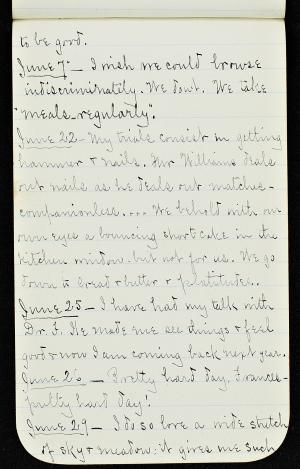 to be good.
June 7 - I wish we could browse
indiscriminately. We don't. We take
"meals regularly".
June 22 - My trials consist in getting
hammer & nails. Mr Williams deals
out nails as he deals out matches -
companionless.... We behold with our
own eyes a bouncing shortcake in the
kitchen window. but not for us. We go
down to bread & butter & platitudes.
June 25 - I have had my talk with
Dr. F. He made me see things & feel
good & now I am coming back next year.
June 26 - Pretty hard day, Frances -
pretty hard day!
June 29 - I do so love a wide stretch
of sky & meadow: it gives me such